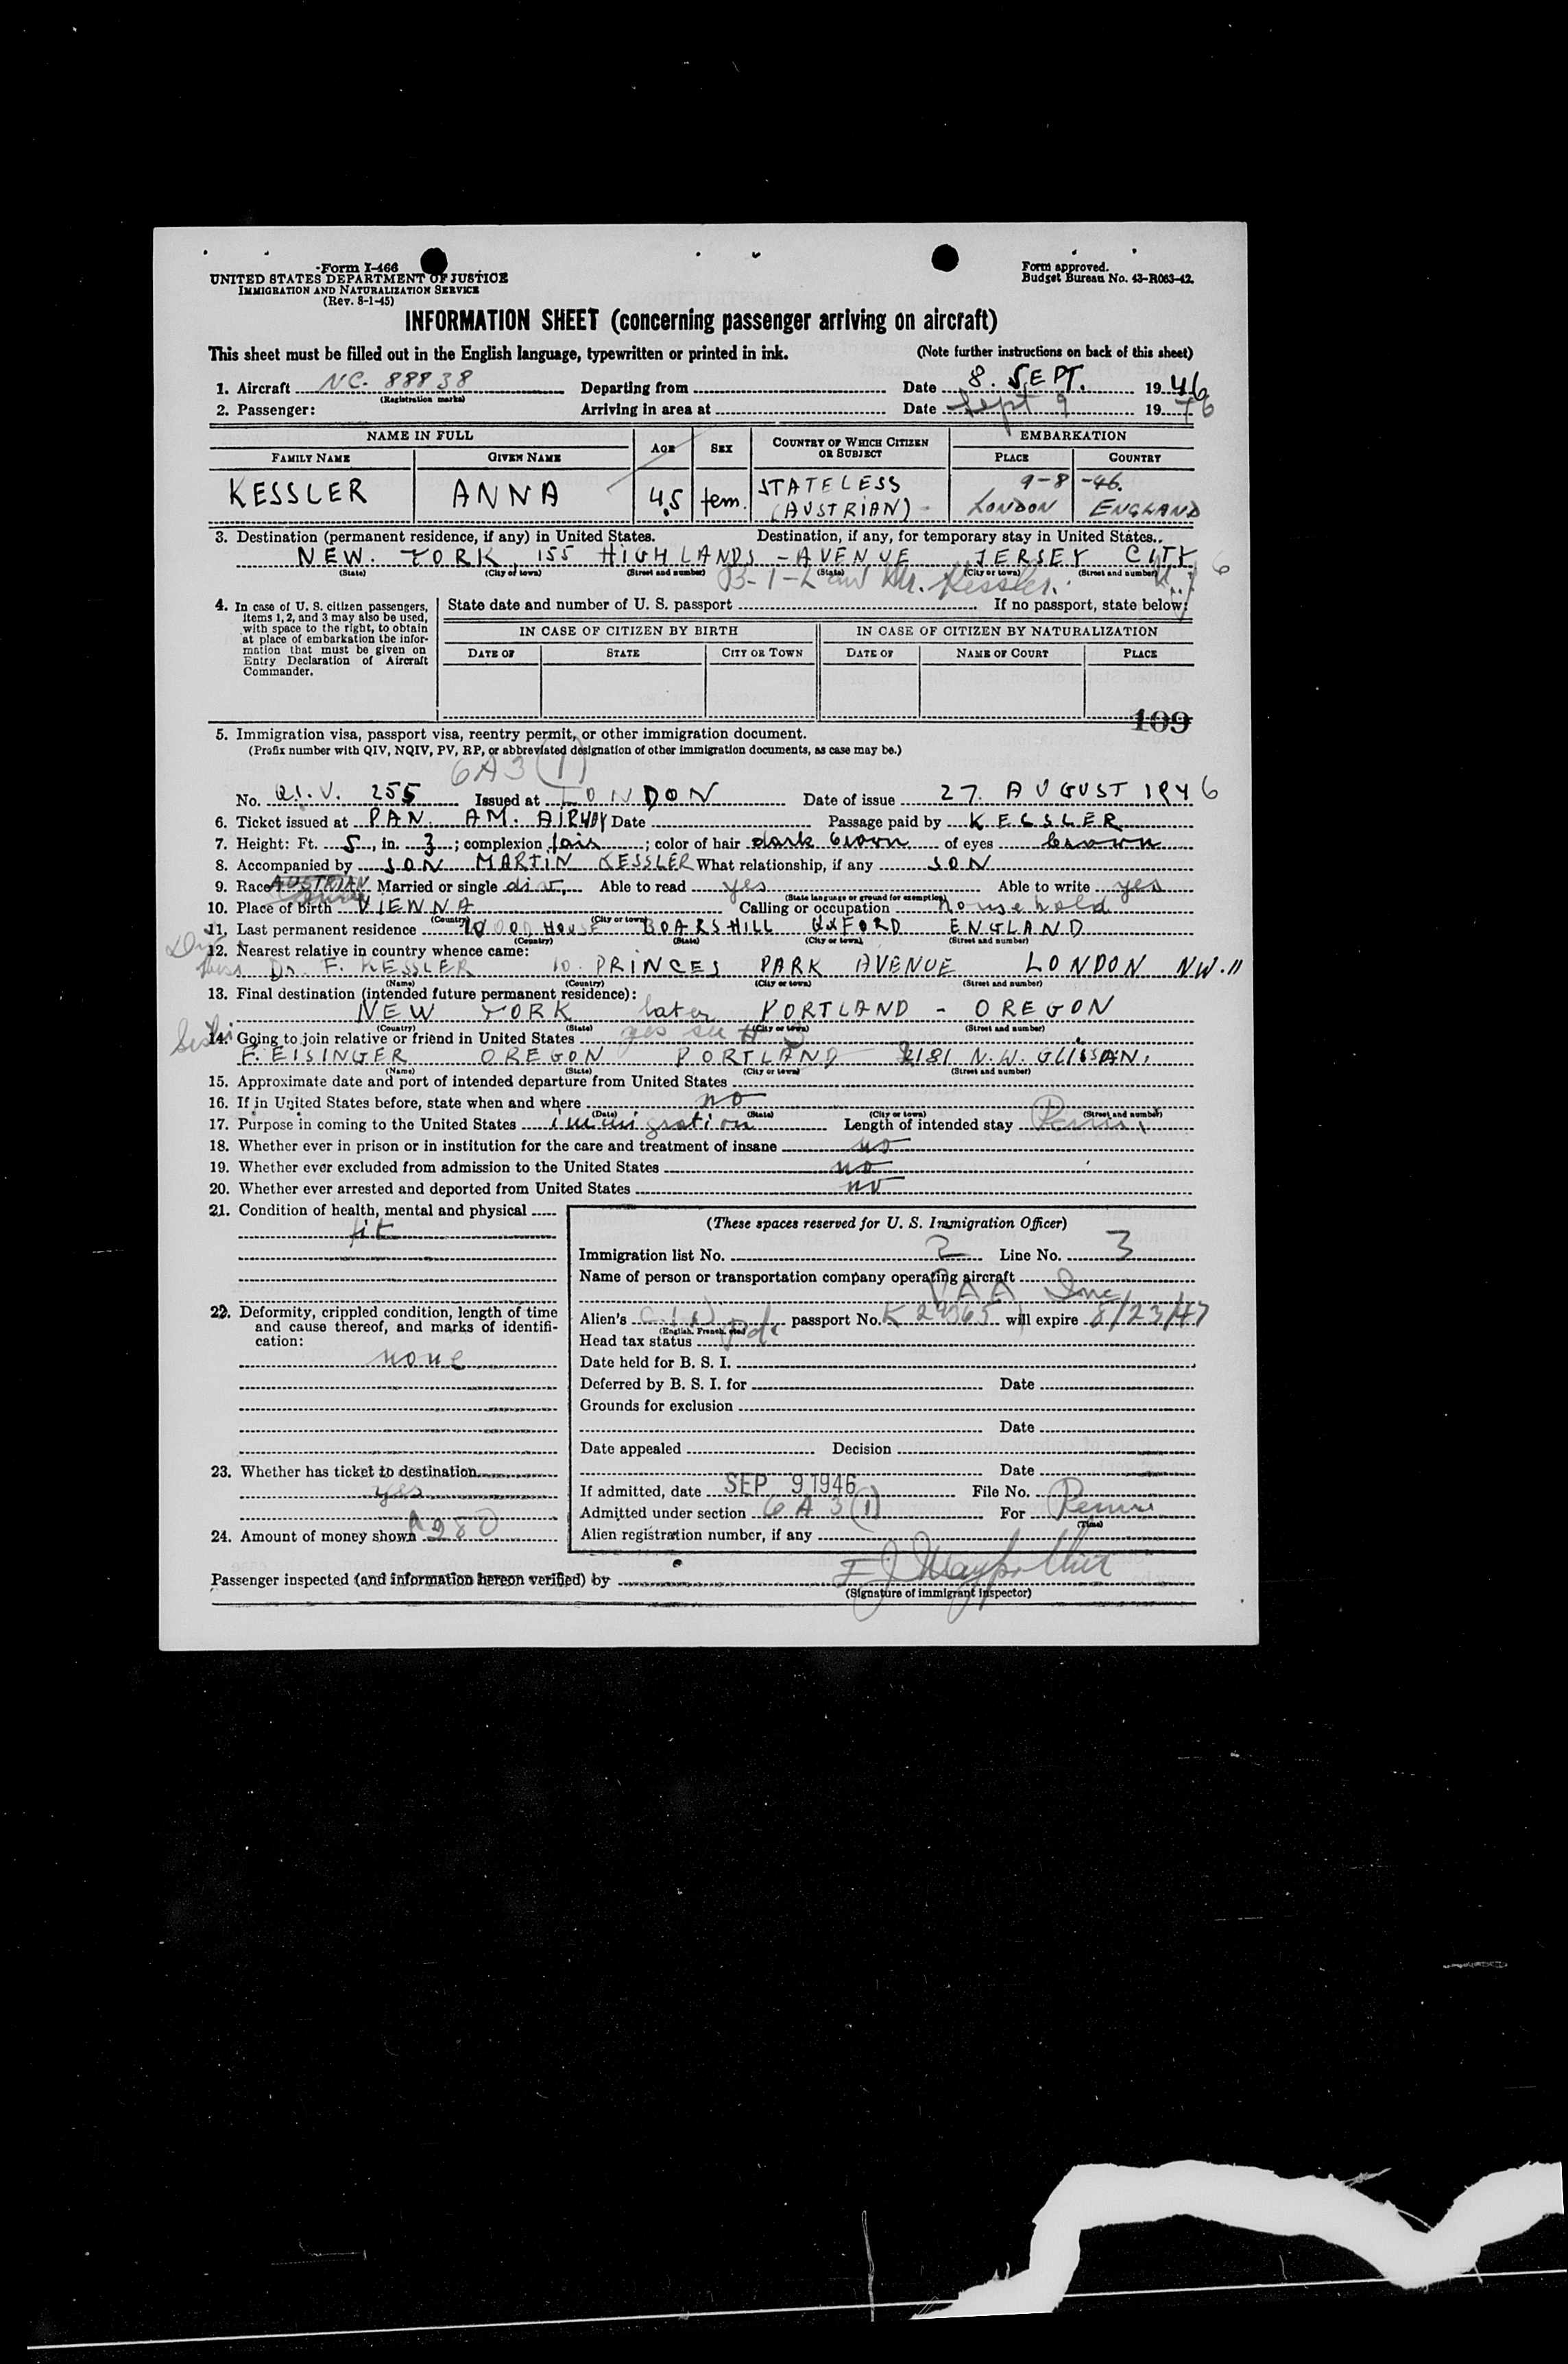 Form I-466
UNITED STATES DEPARTMENT OF JUSTICE
IMMIGRATION AND NATURALIZATION SERVICE
(Rev. 8-1-45)
Form approved.
Budget Bureau No. 43-R063-42.
INFORMATION SHEET (concerning passenger arriving on aircraft)
This sheet must be filled out in the English language, typewritten or printed in ink. (Note further instructions on back of this sheet)
1. Aircraft NC. 88838 Departing from Date 8. SEPT. 1946
(Registration marks)
2. Passenger: Arriving in area at Date Sept 9 1946
NAME IN FULL AGE SEX COUNTRY OF WHICH CITIZEN OR SUBJECT EMBARKATION
FAMILY NAME GIVEN NAME PLACE COUNTRY
9-8-46.
KESSLER ANNA 45 fem. STATELESS (AUSTRIAN) LONDON ENGLAND
3. Destination (permanent residence, if any) in United States. Destination, if any, for temporary stay in United States.
NEW YORK, 155 HIGHLANDS - AVENUE JERSEY CITY
(State) (City or town) (Street and number) (State) (City or town) (Street and number)
B-I-L Kessler. N.J.
4. In case of U. S. citizen passengers, items 1, 2, and 3 may also be used, with space to the right, to obtain at place of embarkation the information that must be given on Entry Declaration of Aircraft Commander.
State date and number of U. S. passport If no passport, state below:
IN CASE OF CITIZEN BY BIRTH IN CASE OF CITIZEN BY NATURALIZATION
DATE OF STATE CITY OR TOWN DATE OF NAME OF COURT PLACE
109
5. Immigration visa, passport visa, reentry permit, or other immigration document.
(Prefix number with QIV, NQIV, PV, RP, or abbreviated designation of other immigration documents, as case may be.)
6A3(1)
No. Q.I.V. 255 Issued at LONDON Date of issue 27. AUGUST 1946
6. Ticket issued at PAN. AM. AIRWAY Date Passage paid by KESSLER
7. Height: Ft. 5, in. 3; complexion fair; color of hair dark brown of eyes brown
8. Accompanied by SON MARTIN KESSLER What relationship, if any SON
9. Race AUSTRIAN Married or single div. Able to read yes Able to write yes
(State language or ground for exemption)
10. Place of birth VIENNA Calling or occupation household
(Country) (City or town)
11. Last permanent residence HOUSE BOARSHILL OXFORD ENGLAND
(Country) (State) (City or town) (Street and number)
12. Nearest relative in country whence came:
Dr. F. KESSLER 10. PRINCES PARK AVENUE LONDON NW.11
(Name) (Country) (City or town) (Street and number)
13. Final destination (intended future permanent residence):
NEW YORK later PORTLAND - OREGON
(Country) (State) (City or town) (Street and number)
Sister
14. Going to join relative or friend in United States yes see # 3
F. EISINGER OREGON PORTLAND 2181 N.W. GLISSAN.
(Name) (State) (City or town) (Street and number)
15. Approximate date and port of intended departure from United States
16. If in United States before, state when and where no
(Date) (State) (City or town) (Street and number)
17. Purpose in coming to the United States immigration Length of intended stay Perm.
18. Whether ever in prison or in institution for the care and treatment of insane no
19. Whether ever excluded from admission to the United States no
20. Whether ever arrested and deported from United States no
21. Condition of health, mental and physical
fit
22. Deformity, crippled condition, length of time and cause thereof, and marks of identification:
none
23. Whether has ticket to destination
yes
24. Amount of money shown 280
(These spaces reserved for U. S. Immigration Officer)
Immigration list No. 2 Line No. 3
Name of person or transportation company operating aircraft
PAA Inc.
Alien's passport No. K 24965 will expire 8/23/47
(English, French, etc.)
Head tax status pd
Date held for B. S. I.
Deferred by B. S. I. for Date
Grounds for exclusion
Date
Date appealed Decision
Date
If admitted, date SEP 9 1946 File No.
Admitted under section 6A3(1) For Perm
(Time)
Alien registration number, if any
Passenger inspected (and information hereon verified) by
(Signature of immigrant inspector)